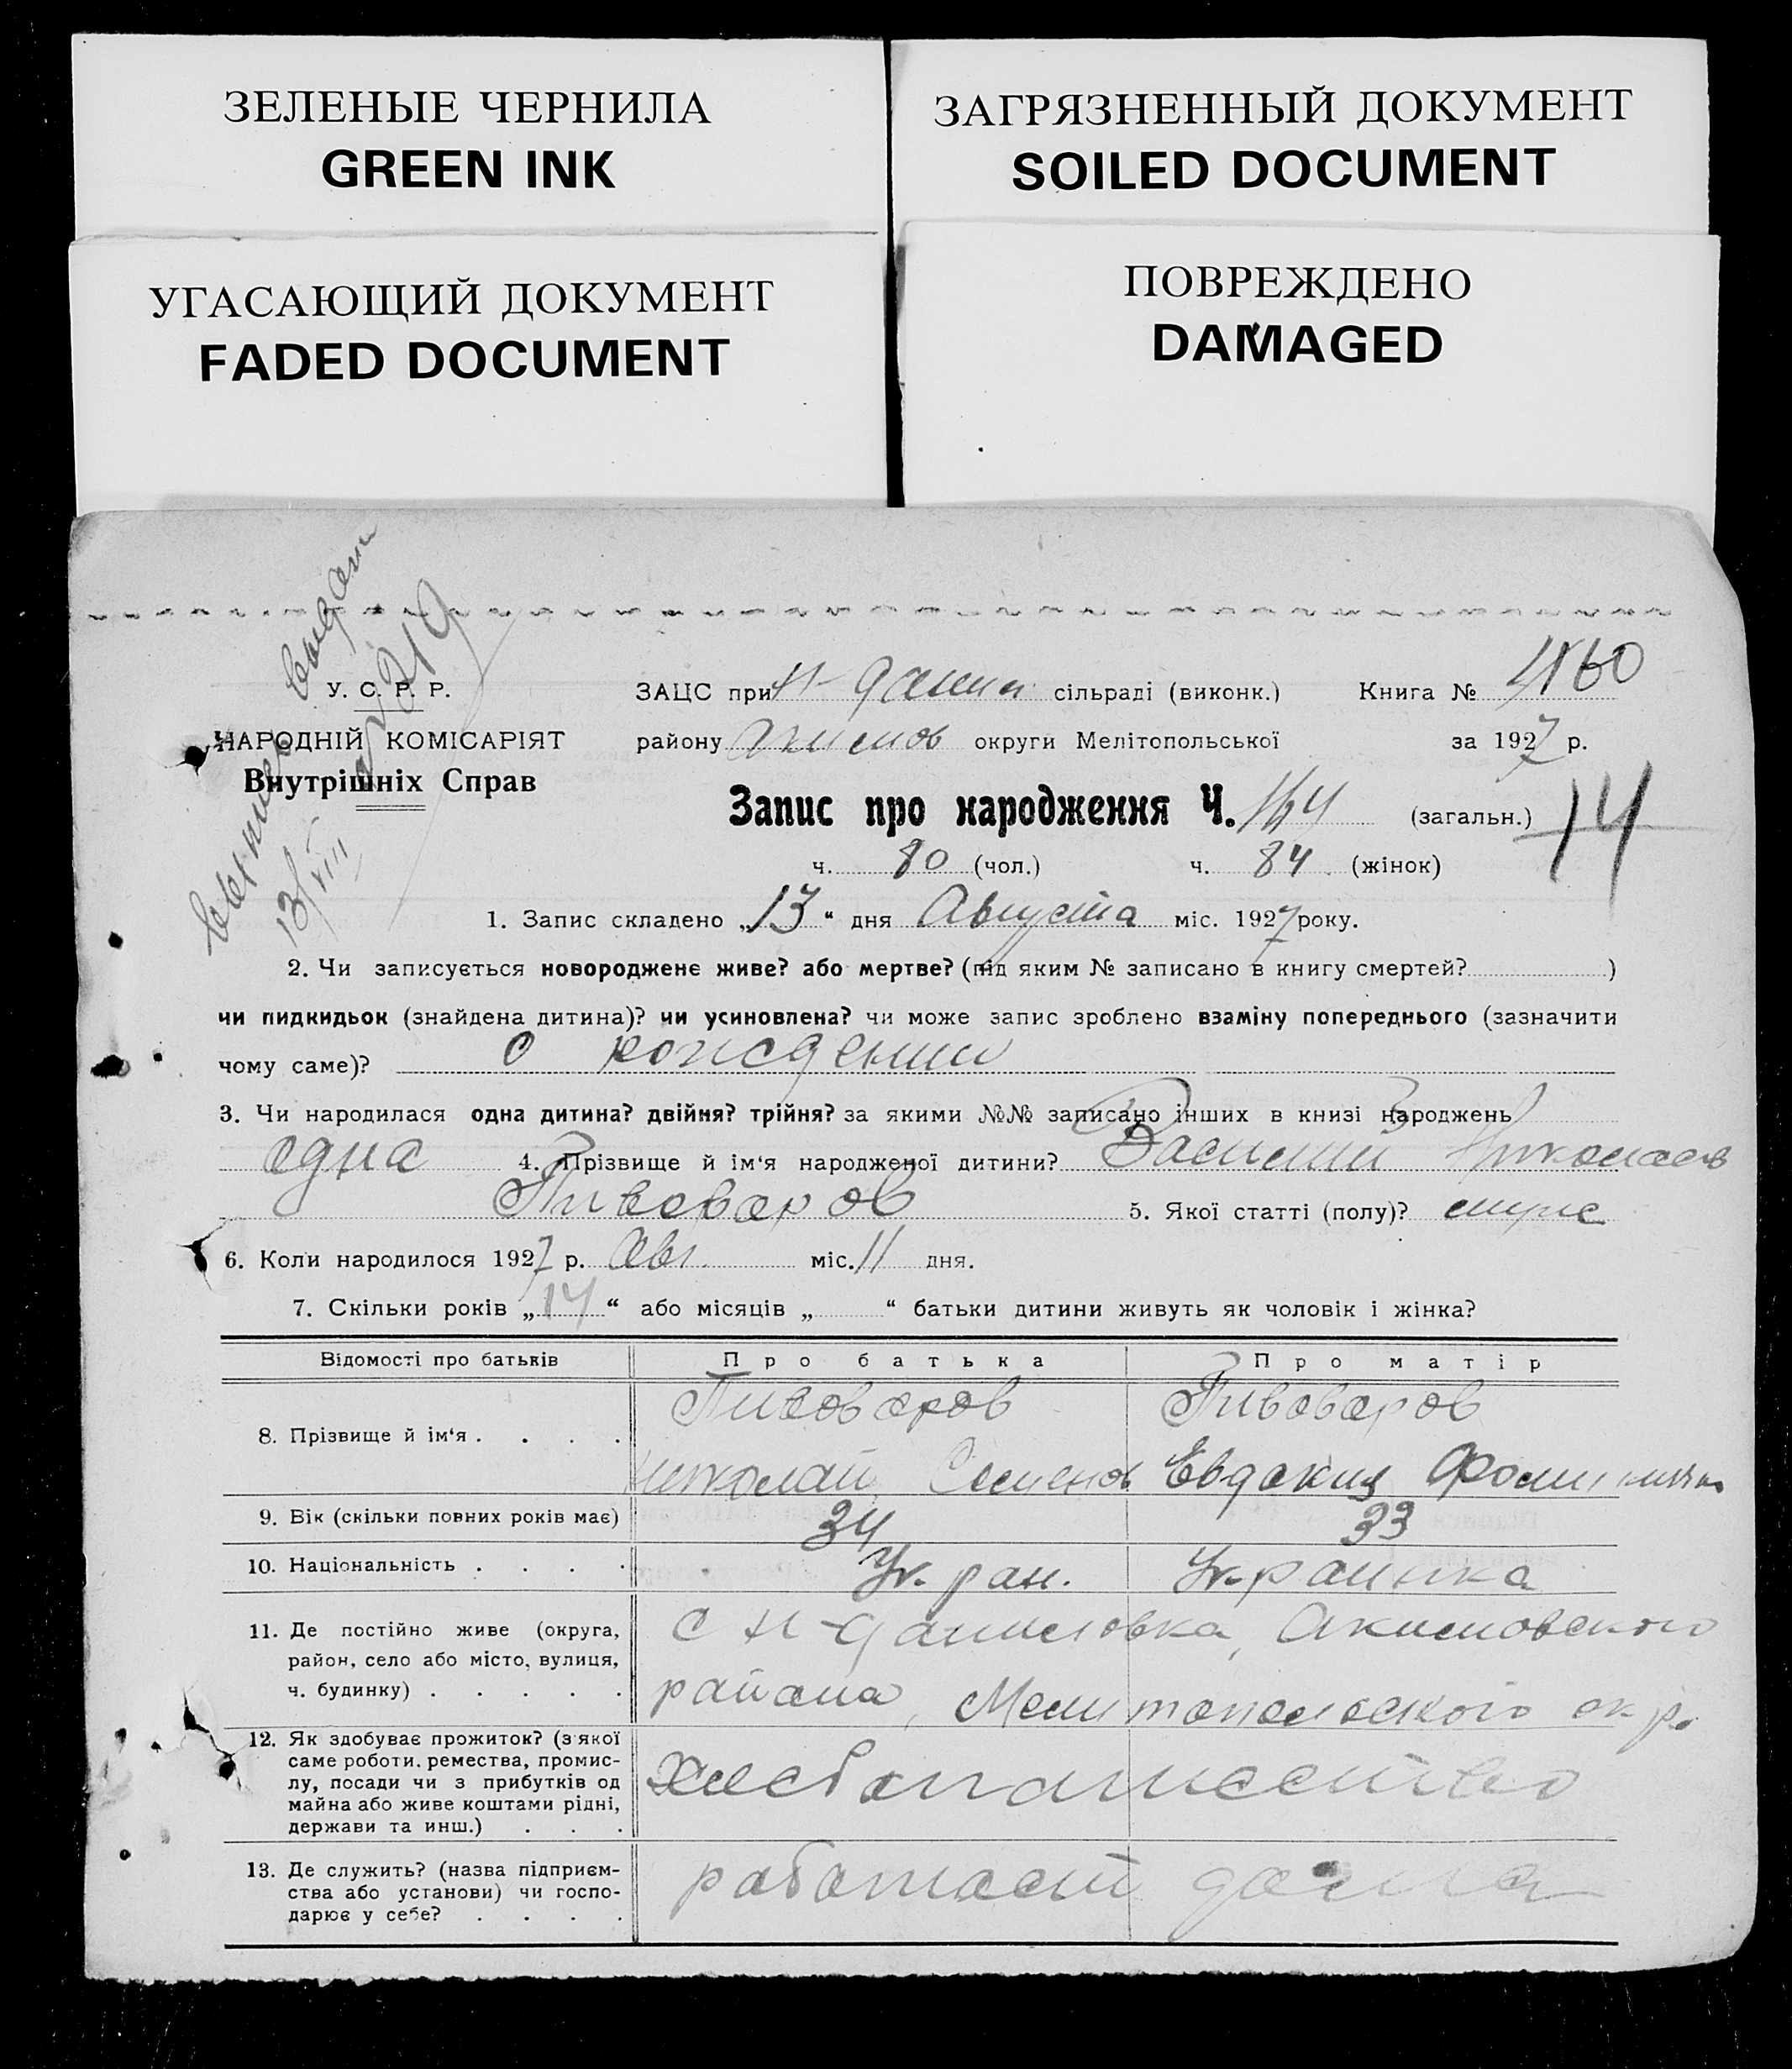 ЗЕЛЕНЫЕ ЧЕРНИЛА
GREEN INK
ЗАГРЯЗНЕННЫЙ ДОКУМЕНТ
SOILED DOCUMENT
УГАСАЮЩИЙ ДОКУМЕНТ
FADED DOCUMENT
ПОВРЕЖДЕНО
DAMAGED
У. С. Р. Р.
НАРОДНІЙ КОМІСАРІЯТ
Внутрішніх Справ
выпись выдан
13/VIII № 219
ЗАЦС при Н- Данил сільраді (виконк.) Книга №
району Акимов округи Мелітопольської за 1927 р.
Запис про народження Ч. 164 (загальн.) 14
ч. 80 (чол.) ч. 84 (жінок)
1. Запис складено „13“ дня Августа міс. 1927 року.
2. Чи записується новороджене живе? або мертве? (під яким № записано в книгу смертей? )
чи пидкидьок (знайдена дитина)? чи усиновлена? чи може запис зроблено взаміну попереднього (зазначити
чому саме)? О рождении
3. Чи народилася одна дитина? двійня? трійня? за якими №№ записано інших в книзі народжень
одна 4. Прізвище й ім‘я народженої дитини? Василий Николаев
Пивоваров 5. Якої статті (полу)? муже
6. Коли народилося 1927 р. Авг. міс. 11 дня.
7. Скільки років „14“ або місяців „ “ батьки дитини живуть як чоловік і жінка?
Відомості про батьків Про батька Про матір
8. Прізвище й ім‘я . . . . Пивоваров Пивоваров
Николай Семенов Евдокия
9. Вік (скільки повних років має) 34 33
10. Національність . . . . Укран. Украинка
11. Де постійно живе (округа,
район, село або місто, вулиця,
ч. будинку) . . . . .
с Н-Даниловка, Акимовского
района, Мелитопольского окр.
12. Як здобуває прожиток? (з якої
саме роботи, ремества, промис-
лу, посади чи з прибутків од
майна або живе коштами рідні,
держави та инш.) . . .
хлебопашество
13. Де служить? (назва підприєм-
ства або установи) чи госпо-
дарює у себе? . . . .
работает дома